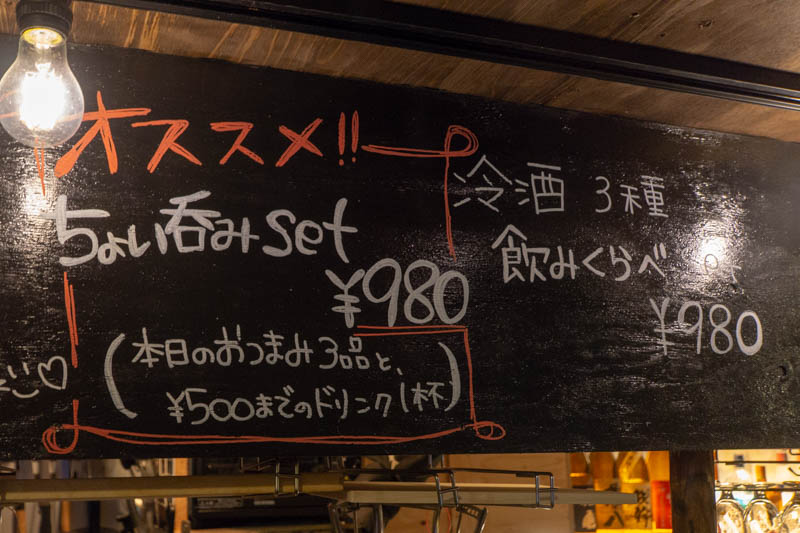 オススメ!!
ちょい呑みset
¥980
(本日のおつまみ3品と、
¥500までのドリンク1杯)
冷酒 3種
飲みくらべ
¥980